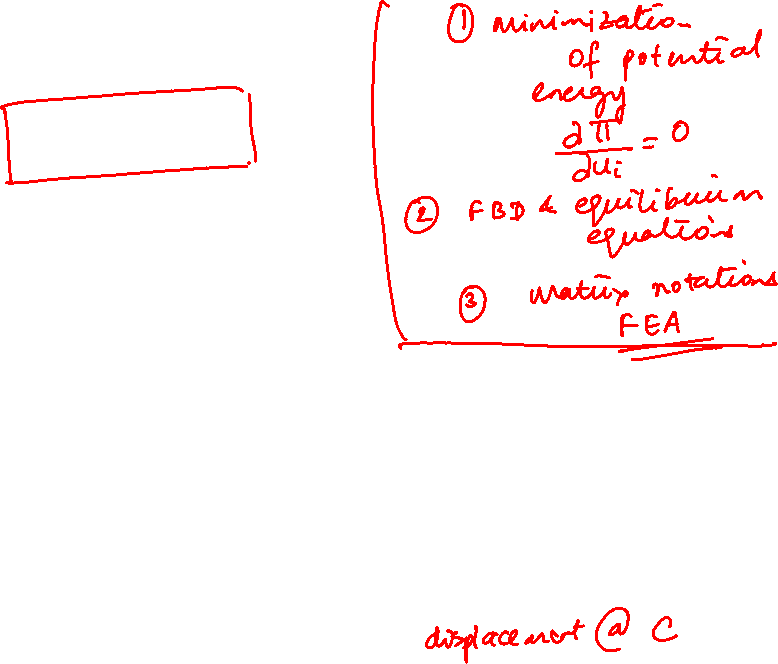 ① Minimization
of potential
energy
∂Π/∂ui = 0
② FBD & equilibrium
equations
③ Matrix notations
FEA
displacement @ C